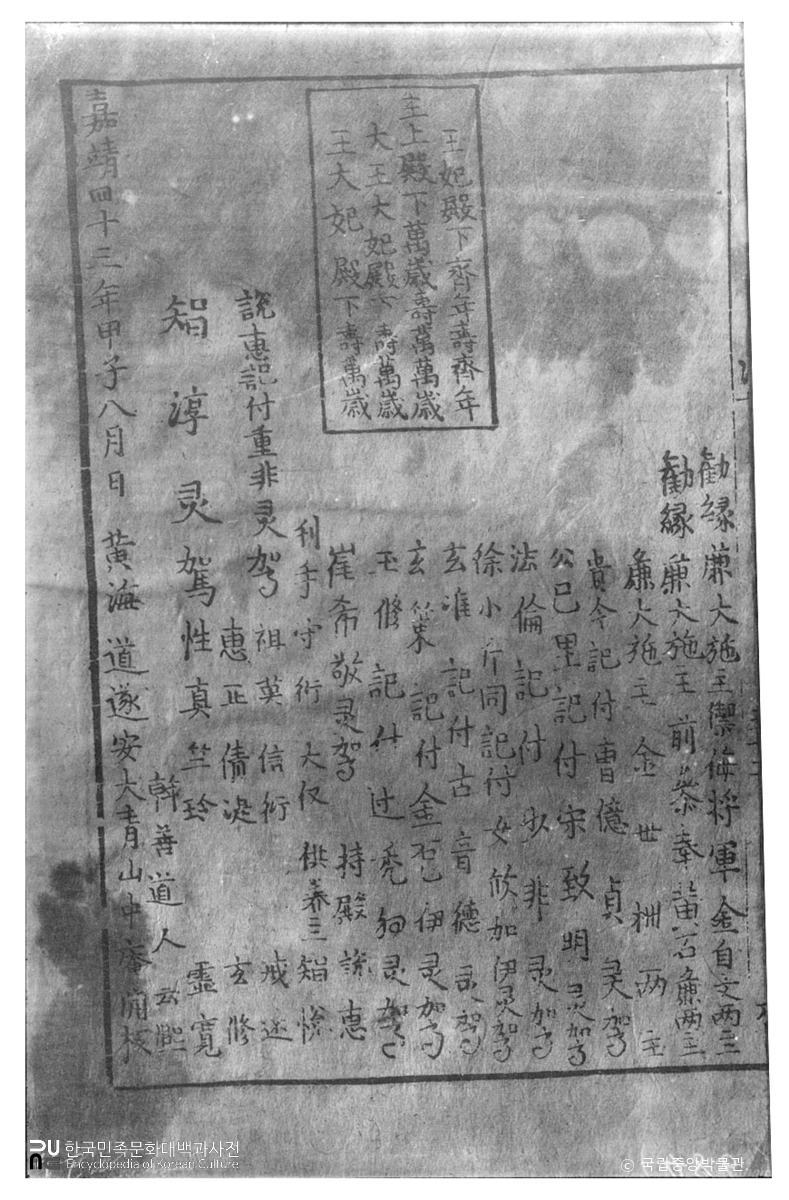 勸縁兼大施主禦侮將軍金自文两主
勸縁兼大施主前叅奉黃石兼两主
兼大施主金世 两主
貴今記付曺億貞灵駕
公已里記付宋致明灵駕
法倫記付 非灵駕
徐小斤同記付女筱加伊灵駕
玄准記付古音德灵駕
玄策記付金 伊灵駕
玉修記付 灵駕
崔希敬灵駕 持殿 惠
利手守衍大仅 供養主智悅
王妃殿下齊年壽齊年
主上殿下萬歲壽萬萬歲
大王大妃殿下壽萬歲
王大妃殿下壽萬歲
說惠記付重非灵駕祖英信衍戒還
惠正倩 玄修
智淳灵駕性真竺玲靈寬
幹善道人云熙
嘉靖四十三年甲子八月日黃海道遂安大青山中庵開板
한국민족문화대백과사전
Encyclopedia of Korean Culture
© 국립중앙박물관